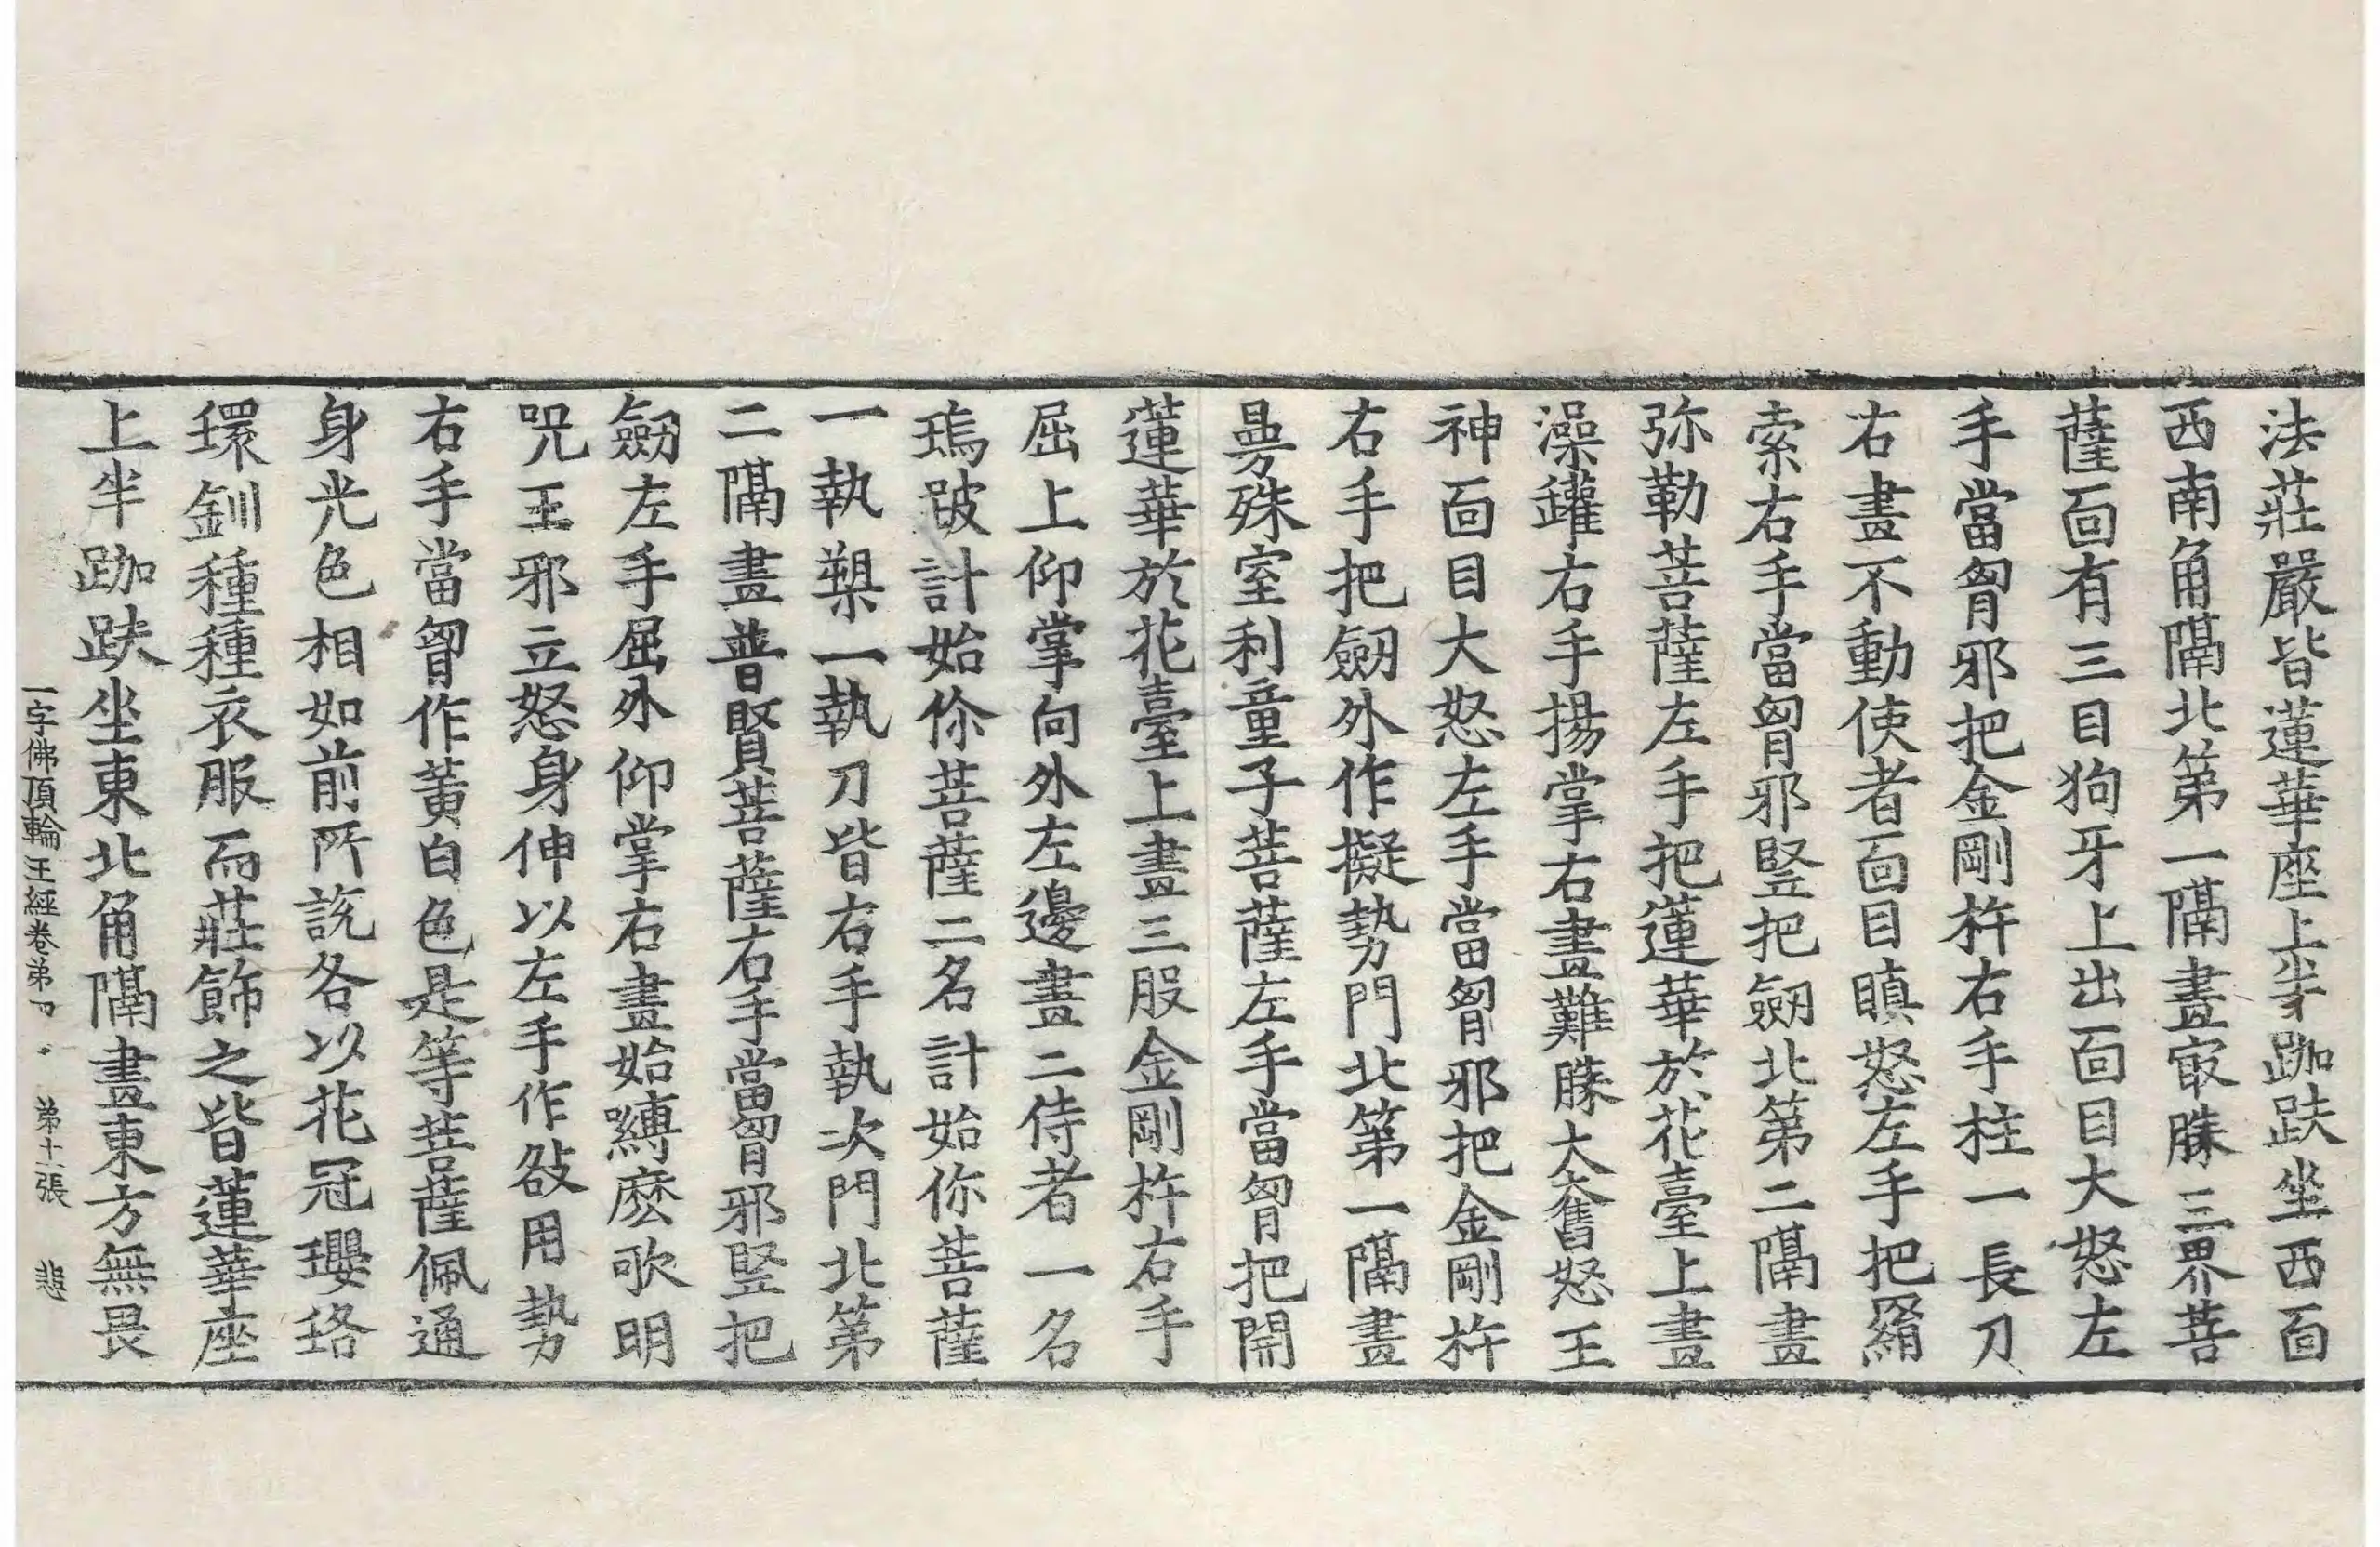 法莊嚴皆蓮華座上半跏趺坐西面
西南角隔北第一隔畫㝡勝三界菩
薩面有三目狗牙上出面目大怒左
手當胷邪把金剛杵右手柱一長刀
右畫不動使者面目瞋怒左手把羂
索右手當胷邪竪把劒北第二隔畫
弥勒菩薩左手把蓮華於花臺上畫
澡鑵右手揚掌右畫難勝大奮怒王
神面目大怒左手當胷邪把金剛杵
右手把劒外作擬勢門北第一隔畫
曼殊室利童子菩薩左手當胷把開
蓮華於花臺上畫三股金剛杵右手
屈上仰掌向外左邊畫二侍者一名
塢跛計始儞菩薩二名計始你菩薩
一執槊一執刀皆右手執次門北第
二隔畫普賢菩薩右手當胷邪竪把
劒左手屈外仰掌右畫始縛麽歌明
咒王邪立怒身伸以左手作敆用勢
右手當胷作黃白色是等菩薩佩通
身光色相如前所說各以花冠瓔珞
環釧種種衣服而莊飾之皆蓮華座
上半跏趺坐東北角隔畫東方無畏
一字佛頂輪王經卷第四 第十一張 悲